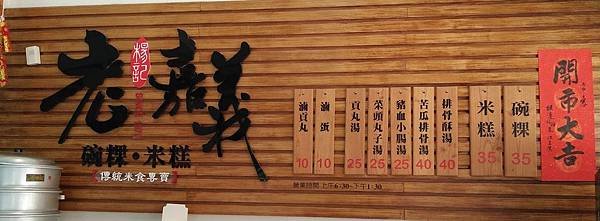 老嘉義
楊記
碗粿·米糕
傳統米食專賣
滷貢丸 10
滷蛋 10
貢丸湯 25
菜頭丸子湯 25
豬血小腸湯 25
苦瓜排骨湯 40
排骨酥湯 40
米糕 35
碗粿 35
營業時間 上午6:30~下午1:30
開市大吉